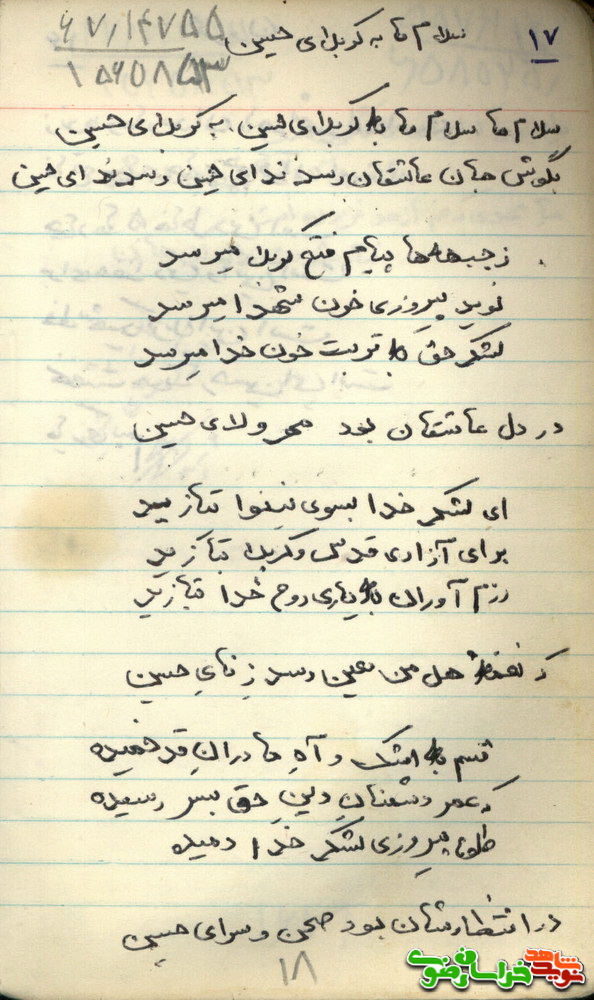 ۱۷
۶۷/۱۴۷۵۵
۱۵۶۰۸۵۳
سلام ما به کربلای حسین
سلام ما سلام ما به کربلای حسین، به کربلای حسین
بگوش جان عاشقان رسد ندای حسین رسد ندای حسین
ز جبهه‌ها پیام فتح کربلا میرسد
نوید پیروزی خون شهدا میرسد
لشکر حق به تربت خون خدا میرسد
در دل عاشقان بود مهر ولای حسین
ای لشکر خدا بسوی نینوا بتازید
برای آزادی قدس و کربلا بتازید
رزم آوران به یاری روح خدا بتازید
که نغمهٔ هل من معین رسد ز نای حسین
قسم به اشک و آهِ مادرانِ قد خمیده
که عمر دشمنانِ دینِ حق بسر رسیده
طلوع پیروزی لشکر خدا دمیده
در انتظارشان بود صحن و سرای حسین
۱۸
نوید شاهد خراسان رضوی